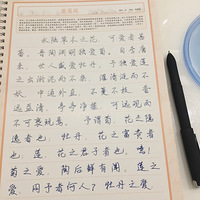 水陆草木之花 可爱者甚
蕃 晋陶渊明独爱菊 自李唐
来 世人盛爱牡丹 予独爱莲
之出淤泥而不染 濯清涟而不
妖 中通外直 不蔓不枝 香
远益清 亭亭净植 可远观而
不可亵玩焉 予谓菊 花之隐
逸者也 牡丹 花之富贵者
也 莲 花之君子者也 噫!
菊之爱 陶后鲜有闻 莲之
爱 同予者何人? 牡丹之爱